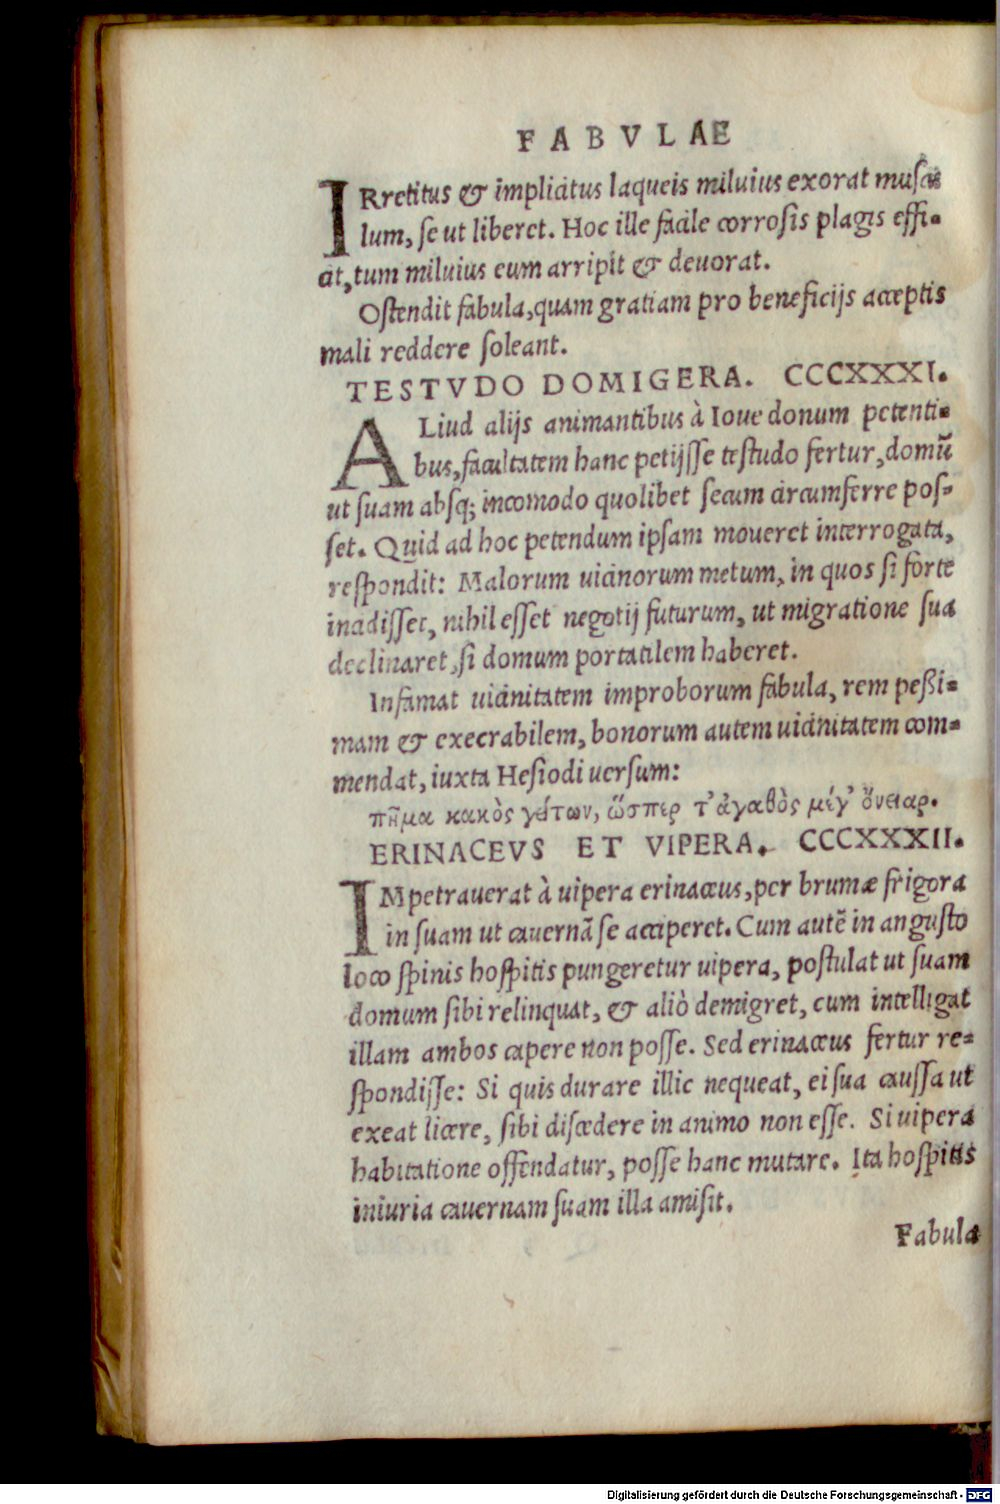 FABVLAE
IRretitus & implicitus laqueis miluius exorat muscu
lum, se ut liberet. Hoc ille facile corrosis plagis effi-
cit, tum miluius eum arripit & deuorat.
Ostendit fabula, quam gratiam pro beneficijs acceptis
mali reddere soleant.
TESTVDO DOMIGERA. CCCXXXI.
ALiud alijs animantibus à Ioue donum petenti-
bus, facultatem hanc petijsse testudo fertur, domũ
ut suam absq; incomodo quolibet secum circumferre pos-
set. Quid ad hoc petendum ipsam moueret interrogata,
respondit: Malorum uicinorum metum, in quos si forte
incidisset, nihil esset negotij futurum, ut migratione sua
declinaret, si domum portatilem haberet.
Infamat uicinitatem improborum fabula, rem peßi-
mam & execrabilem, bonorum autem uicinitatem com-
mendat, iuxta Hesiodi uersum:
πῆμα κακὸς γείτων, ὥσπερ τ' ἀγαθὸς μέγ' ὄνειαρ.
ERINACEVS ET VIPERA. CCCXXXII.
IMpetrauerat à uipera erinaceus, per brumæ frigora
in suam ut cauernã se acciperet. Cum autẽ in angusto
loco spinis hospitis pungeretur uipera, postulat ut suam
domum sibi relinquat, & aliò demigret, cum intelligat
illam ambos capere non posse. Sed erinaceus fertur re-
spondisse: Si quis durare illic nequeat, ei sua caussa ut
exeat licere, sibi discedere in animo non esse. Si uipera
habitatione offendatur, posse hanc mutare. Ita hospitis
iniuria cauernam suam illa amisit.
Fabula
Digitalisierung gefördert durch die Deutsche Forschungsgemeinschaft - DFG